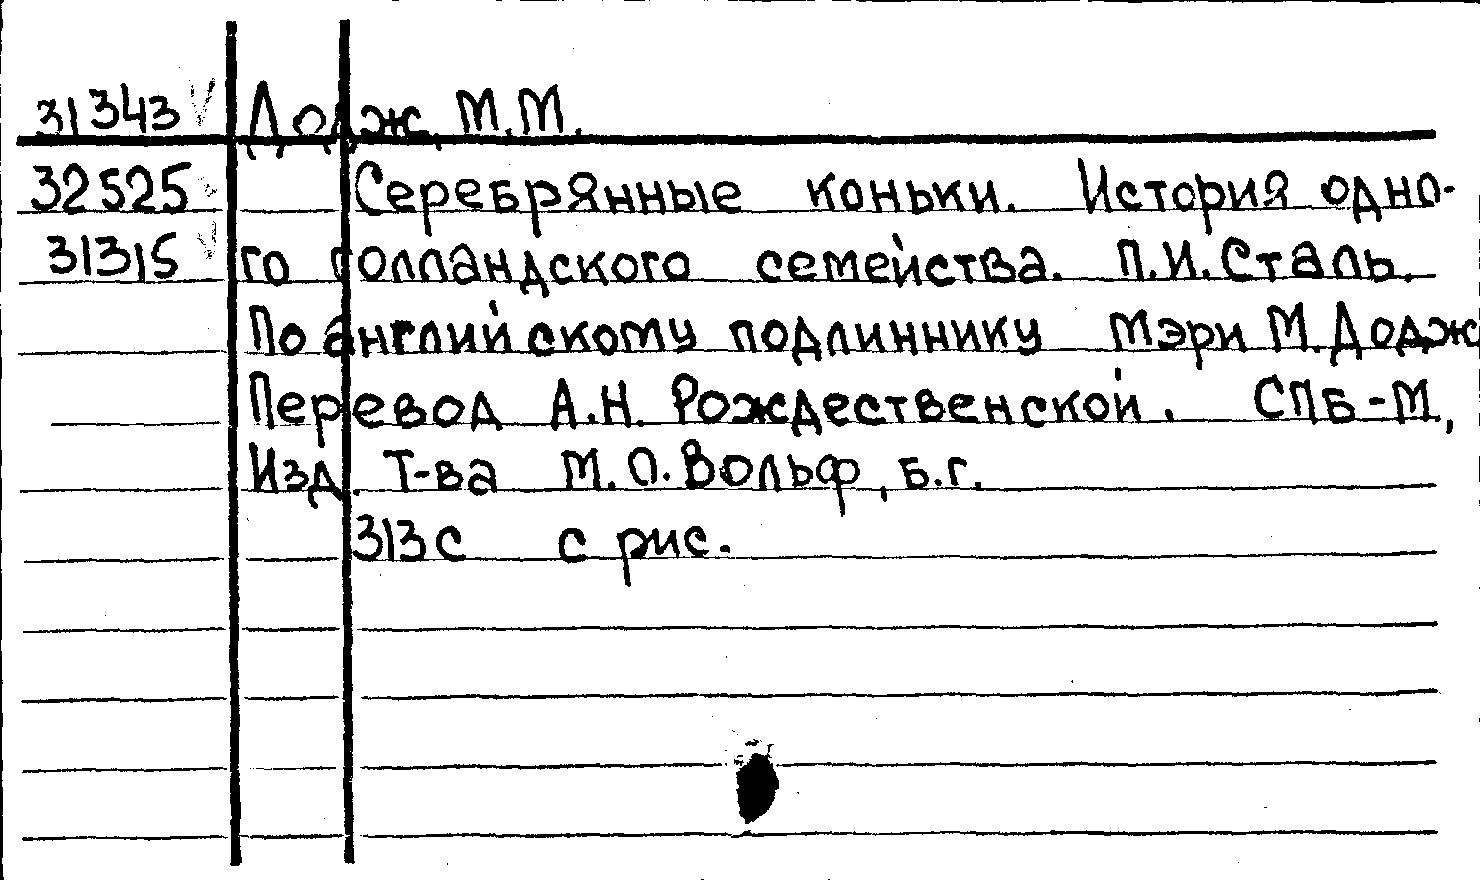 31343 V Додж, М.М.
32525 V Серебрянные коньки. История одно-
31315 V го голландского семейства. П.И.Сталь.
По английскому подлиннику Мэри М.Додж
Перевод А.Н. Рождественской. СПБ-М,
Изд. Т-ва М.О.Вольф, б.г.
313с с рис.